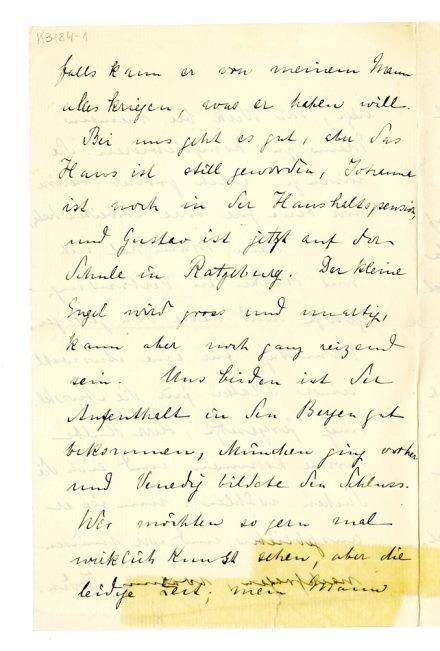 K3184-1
falls kann er von meinem Mann
alles kriegen, was er haben will.
Bei uns geht es gut, aber das
Haus ist still geworden, Johanna
ist noch in der Haushaltspension,
und Gustav ist jetzt auf der
Schule in Ratzeburg. Der kleine
Engel wird gross und unartig,
kann aber noch ganz reizend
sein. Uns beiden ist der
Aufenthalt in den Bergen gut
bekommen, München ging vorher
und Venedig bildete den Schluss.
Wir möchten so gern mal
wirklich Kunst sehen, aber die
leidige Zeit; mein Mann